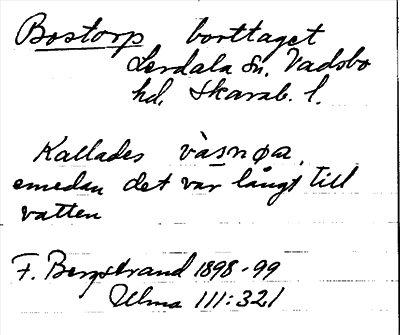 Bostorp borttaget
Lerdala sn. Vadsbo
hd. Skarab. l.
Kallades vàsnøa,
emedan det var långt till
vatten
F. Bergstrand 1898-99
Ulma 111:321